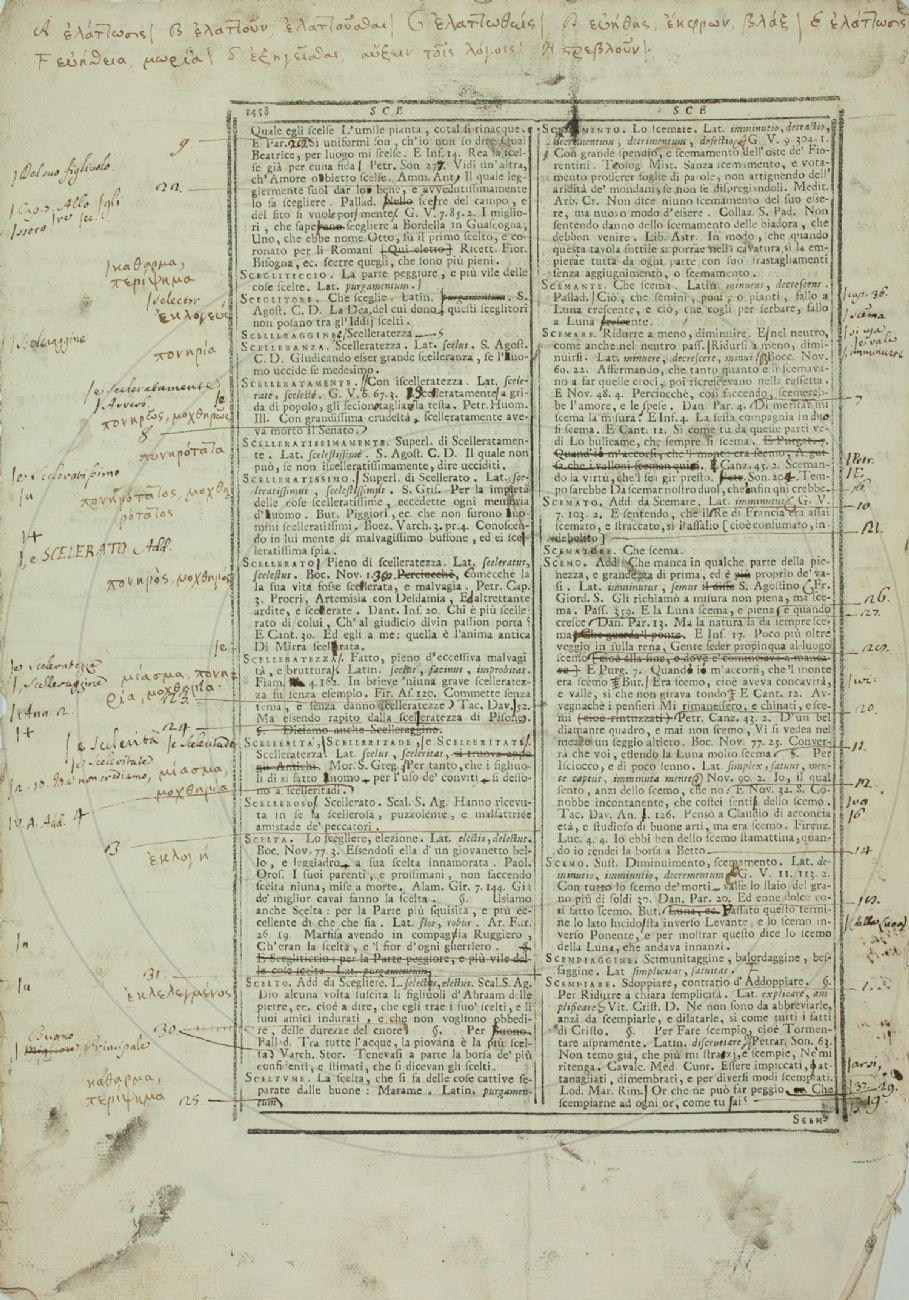 Α ἐλάττωσις| Β ἐλαττοῦν, ἐλαττοῦσθαι| C ἐλαττωθείς| D εὐήθης, ἔκφρων, βλάξ| E ἐλάττωσις
F εὐήθεια, μωρία| G ἐξηγεῖσθαι, αὔξειν τοῖς λόγοις| H στρεβλοῦν|
1558 SCE
Quale egli scelse L'umile pianta, cotal si rinacque.
E Par. Sì uniformi son, ch'io non so dire Qual
Beatrice, per luogo mi scelse. E Inf. 14. Rea la scel-
se già per cuna fida Petr. Son Vidi un'altra,
ch'Amore obbietto scelse. Amm. Ant. Il quale leg-
giermente suol dar lo bene, e avvedutissimamente
lo fa scegliere. Pallad. Nello scerre del campo, e
del sito si vuole por mente G. V. 7. 85. 2. I miglio-
ri, che sapessono scegliere a Bordella in Guascogna,
Uno, che ebbe nome Otto, fu il primo scelto, e co-
ronato per li Romani [Qui eletto] Ricett. Fior.
Bisogna, ec. scerre quegli, che sono più pieni.
SCEGLITICCIO. La parte peggiore, e più vile delle
cose scelte. Lat. purgamentum.
SCEGLITORE. Che sceglie. Latin. purgamentum. S.
Agost. C. D. La Dea, del cui dono questi sceglitori
non posano tra gl'Iddij scelti.
SCELERAGGINE Scelleratezza
SCELERANZA. Scelleratezza. Lat. scelus. S. Agost.
C. D. Giudicando esser grande scelleranza, se l'uo-
mo uccide se medesimo.
SCELLERATAMENTE. Con iscelleratezza. Lat. scele-
rate, scelestè. G. V. 6. 67. 3. Scelleratamente a gri-
da di popolo, gli feciono tagliar la testa. Petr. Huom.
Ill. Con grandissima crudeltà, scelleratamente ave-
va morto il Senato.
SCELLERATISSIMAMENTE. Superl. di Scelleratamen-
te. Lat. scelestissimè. S. Agost. C. D. Il quale non
può, se non iscelleratissimamente, dire ucciditi.
SCELLERATISSIMO. Superl. di Scellerato. Lat. sce-
leratissimus, scelestissimus. S. Gris. Per la impietà
delle cose scelleratissime, eccedette ogni memoria
d'uomo. But. Piggiori, ec. che non furono uo-
mini scelleratissimi. Boez. Varch. 3. pr. 4. Conoscen-
do in lui mente di malvagissimo buffone, ed ei scel-
leratissima spia.
SCELLERATO Pieno di scelleratezza. Lat. sceleratus,
scelestus. Boc. Nov. 1. Perciocchè, comecchè la
la sua vita fosse scellerata, e malvagia. Petr. Cap.
3. Procri, Artemisia con Deidamia, Ed altrettante
ardite, e scellerate. Dant. Inf. 20. Chi è più scelle-
rato di colui, Ch'al giudicio divin passion porta?
E Cant. 30. Ed egli a me: quella è l'anima antica
Di Mirra scellerata.
SCELLERATEZZA. Fatto, pieno d'eccessiva malvagi
tà, e bruttura. Latin. scelus, facinus, improbitas.
Fiam. 4. 162. In brieve niuna grave scelleratez-
za fu senza esemplo. Fir. As. 120. Commette senza
tema, e senza danno scelleratezze Tac. Dav. 52.
Ma essendo rapito dalla scelleratezza di Pisone.
§. Diciamo anche Scelleraggine.
SCELLERITÀ, SCELLERITADE, e SCELLERITATE.
Scelleratezza. Lat. scelus, sceleritas, si truova ne-
gli Antichi. Mor. S. Greg. Per tanto, che i figliuo-
li di sì fatto uomo, per l'uso de' conviti, si desso-
no a scelleritadi.
SCELLEROSO. Scellerato. Scal. S. Ag. Hanno ricevu-
ta in se la scellerosa, puzzolente, e malfattride
amistade de' peccatori.
SCELTA. Lo scegliere, elezione. Lat. electio, delectus.
Boc. Nov. 77. 3. Essendosi ella d'un giovanetto bel-
lo, e leggiadro, a sua scelta innamorata. Paol.
Oros. I suoi parenti, e prossimani, non faccendo
scelta niuna, mise a morte. Alam. Gir. 7. 144. Gia
de' miglior cavai fanno la scelta. §. Usiamo
anche Scelta: per la Parte più squisita, e più ec-
cellente di che che sia. Lat. flos, robur. Ar. Fur.
26. 19. Marfisa avendo in compagnia Ruggiero,
Ch'eran la scelta, e 'l fior d'ogni guerriero. §.
E Scegliticcio: per la Parte peggiore, e più vile del-
le cose scelte. Lat. purgamentum.
SCELTO. Add da Scegliere. L. selectus, electus. Scal. S. Ag.
Dio alcuna volta suscita li figliuoli d'Abraam delle
pietre, ec. cioè a dire, che egli trae i suo' scelti, e li
suoi amici indurati, e che non vogliono obbedi-
re, delle durezze del cuore §. Per Buono.
Pallad. Tra tutte l'acque, la piovana è la più scel-
ta Varch. Stor. Tenevasi a parte la borsa de' più
confidenti, e stimati, che si dicevan gli scelti.
SCELTUME. La scelta, che si fa delle cose cattive se-
parate dalle buone: Marame. Latin. purgamen-
tum.
SCE
SCEMAMENTO. Lo scemare. Lat. imminutio, detractio,
decrementum, detrimentum, defectio. G. V. 9. 304. 1.
Con grande spendio, e iscemamento dell'oste de' Fio-
rentini. Teolog. Mist. Sanza scemamento, e vota-
mento profferer foglie di parole, non attignendo dell'
aridità de' mondani, se non se dispregiandoli. Medit.
Arb. Cr. Non dice niuno scemamento del suo esse-
re, ma nuovo modo d'essere. Collaz. S. Pad. Non
sentendo danno dello scemamento delle biadora, che
debbon venire. Lib. Astr. In modo, che quando
questa tavola sottile si porrae nella cavatura, si la em-
pierae tutta da ogni parte con suo frastagliamenti
senza aggiugnimento, o scemamento.
SCEMANTE. Che scema. Latin. minuens, decrescens.
Pallad. Ciò, che semini, poni, o pianti, fallo a
Luna crescente, e ciò, che cogli per serbare, fallo
a Luna
SCEMARE. Ridurre a meno, diminuire. E nel neutro,
come anche nel neutro pass. Ridursi a meno, dimi-
nuirsi. Lat. minuere, decrescere, minui Bocc. Nov.
60. 22. Affermando, che tanto quanto essi scemava-
no a far quelle croci, poi ricrescevano nella cassetta.
E Nov. 48. 4. Perciocchè, così faccendo, scemereb-
be l'amore, e le spese. Dan. Par. 4. Di meritar mi
scema la misura? E Inf. 4. La sesta compagnia in duo
si scema. E Cant. 12. Si come tu da queste parti ve-
di Lo bulicame, che sempre si scema. E Purgat. 7.
Quand'io m'accorsi, che 'l monte era scemo, A gui-
sa che i valloni sceman quici. E Canz. 45. 2. Sceman-
do la virtù, che 'l fei gir presto. Petr. Son. Tem-
po sarebbe Da scemar nostro duol, che infin qui crebbe.
SCEMATO. Add da Scemare. Lat. imminutus G. V.
7. 103. 2. E sentendo, che il Re di Francia era assai
scemato, e straccato, si l'assalio [cioè consumato, in-
debolito]
SCEMATORE. Che scema.
SCEMO. Add. Che manca in qualche parte della pie-
nezza, e grandezza di prima, ed è più proprio de' va-
si. Lat. imminutus, semus il disse S. Agostino Fr.
Giord. S. Gli richiamò a misura non piena, ma sce-
ma. Pass. 359. E la Luna scema, e piena e quando
cresce Dan. Par. 13. Ma la natura la dà sempre sce-
ma Che guarda 'l ponte. E Inf. 17. Poco più oltre
veggio in sulla rena, Gente seder propinqua al luogo
scemo [cioè alla fine, e dove e' cominciava a manca-
re] E Purg. 7. Quando io m'accorsi, che 'l monte
era scemo But. Era scemo, cioè aveva concavità,
e valle, sì che non girava tondo E Cant. 12. Av-
vegnachè i pensieri Mi rimanessero, e chinati, e sce-
mi (cioè rintuzzati) Petr. Canz. 43. 2. D'un bel
diamante quadro, e mai non scemo, Vi si vedea nel
mezzo un seggio altiero. Boc. Nov. 77. 25. Conver-
rà che voi, essendo la Luna molto scema Per
Isciocco, e di poco senno. Lat. simplex, fatuus, men-
te captus, imminuta mente Nov. 90. 2. Io, il qual
sento, anzi dello scemo, che no E Nov. 32. 8. Co-
nobbe incontanente, che costei sentia dello scemo.
Tac. Dav. An. 126. Pensò a Claudio di acconcia
età, e studioso di buone arti, ma era scemo. Firenz.
Luc. 4. 4. Io ebbi ben dello scemo stamattina, quan-
do io rendei la borsa a Betto
SCEMO. Sust. Diminuimento, scemamento. Lat. de-
minutio, imminutio, decrementum G. V. 11. 113. 2.
Con tutto lo scemo de' morti valse lo staio del gra-
no più di soldi 30. Dan. Par. 20. Ed enne dolce co-
sì fatto scemo. But. Luna, ec. Passato questo termi-
ne lo lato lucido sta inverso Levante, e lo scemo in-
verso Ponente, e per mostrar questo dice lo scemo
della Luna, che andava innanzi.
SCEMPIAGGINE. Scimunitaggine, balordaggine, bes-
saggine. Lat simplicitas, fatuitas.
SCEMPIARE. Sdoppiare, contrario d'Addoppiare. §.
Per Ridurre a chiara semplicità. Lat. explicare, am
plificare Vit. Crist. D. Ne non son da abbreviarle,
anzi da scempiarle, e dilatarle, sì come tutti i fatti
di Cristo. §. Per Fare scempio, cioè Tormen-
tare aspramente. Latin. discruciare Petrar. Son. 63.
Non temo già, che più mi strazj, e scempie, Nè mi
ritenga. Cavalc. Med. Cuor. Essere impiccati, at-
tanagliati, dimembrati, e per diversi modi scempiati.
Lod. Mar. Rim. Or che ne può far peggio Che
scempiarne ad ogni or, come tu fai?
SCEM-
9
Del suo figliuolo
22
κάθαρμα,
περίψημα
selector
ἐκλογεύς
Sceleraggine
πονηρία
e Sceleratamente
Avverò
πονηρῶς, μοχθηρῶς
8
πονηρότατα
e Sceleratissimo
πονηρότατος, μοχθη
ρότατος
e SCELERATO Add.
πονηρός, μοχθηρός
e Sceleratezza
Sceleraggine
μίασμα, πονη
ρία, μοχθηρία
23
Ann. 2.
24
e Scelerità e Sceleritade
e Sceleritate
μίασμα,
μοχθηρία
A. Add.
13
ἐκλογή
31
ἐκλελεγμένος
30
Buono
Principale
κάθαρμα,
περίψημα
25
cap. 36.
scema
7
Petr.
E
10
21
26
27
20
12
16
14
29
19